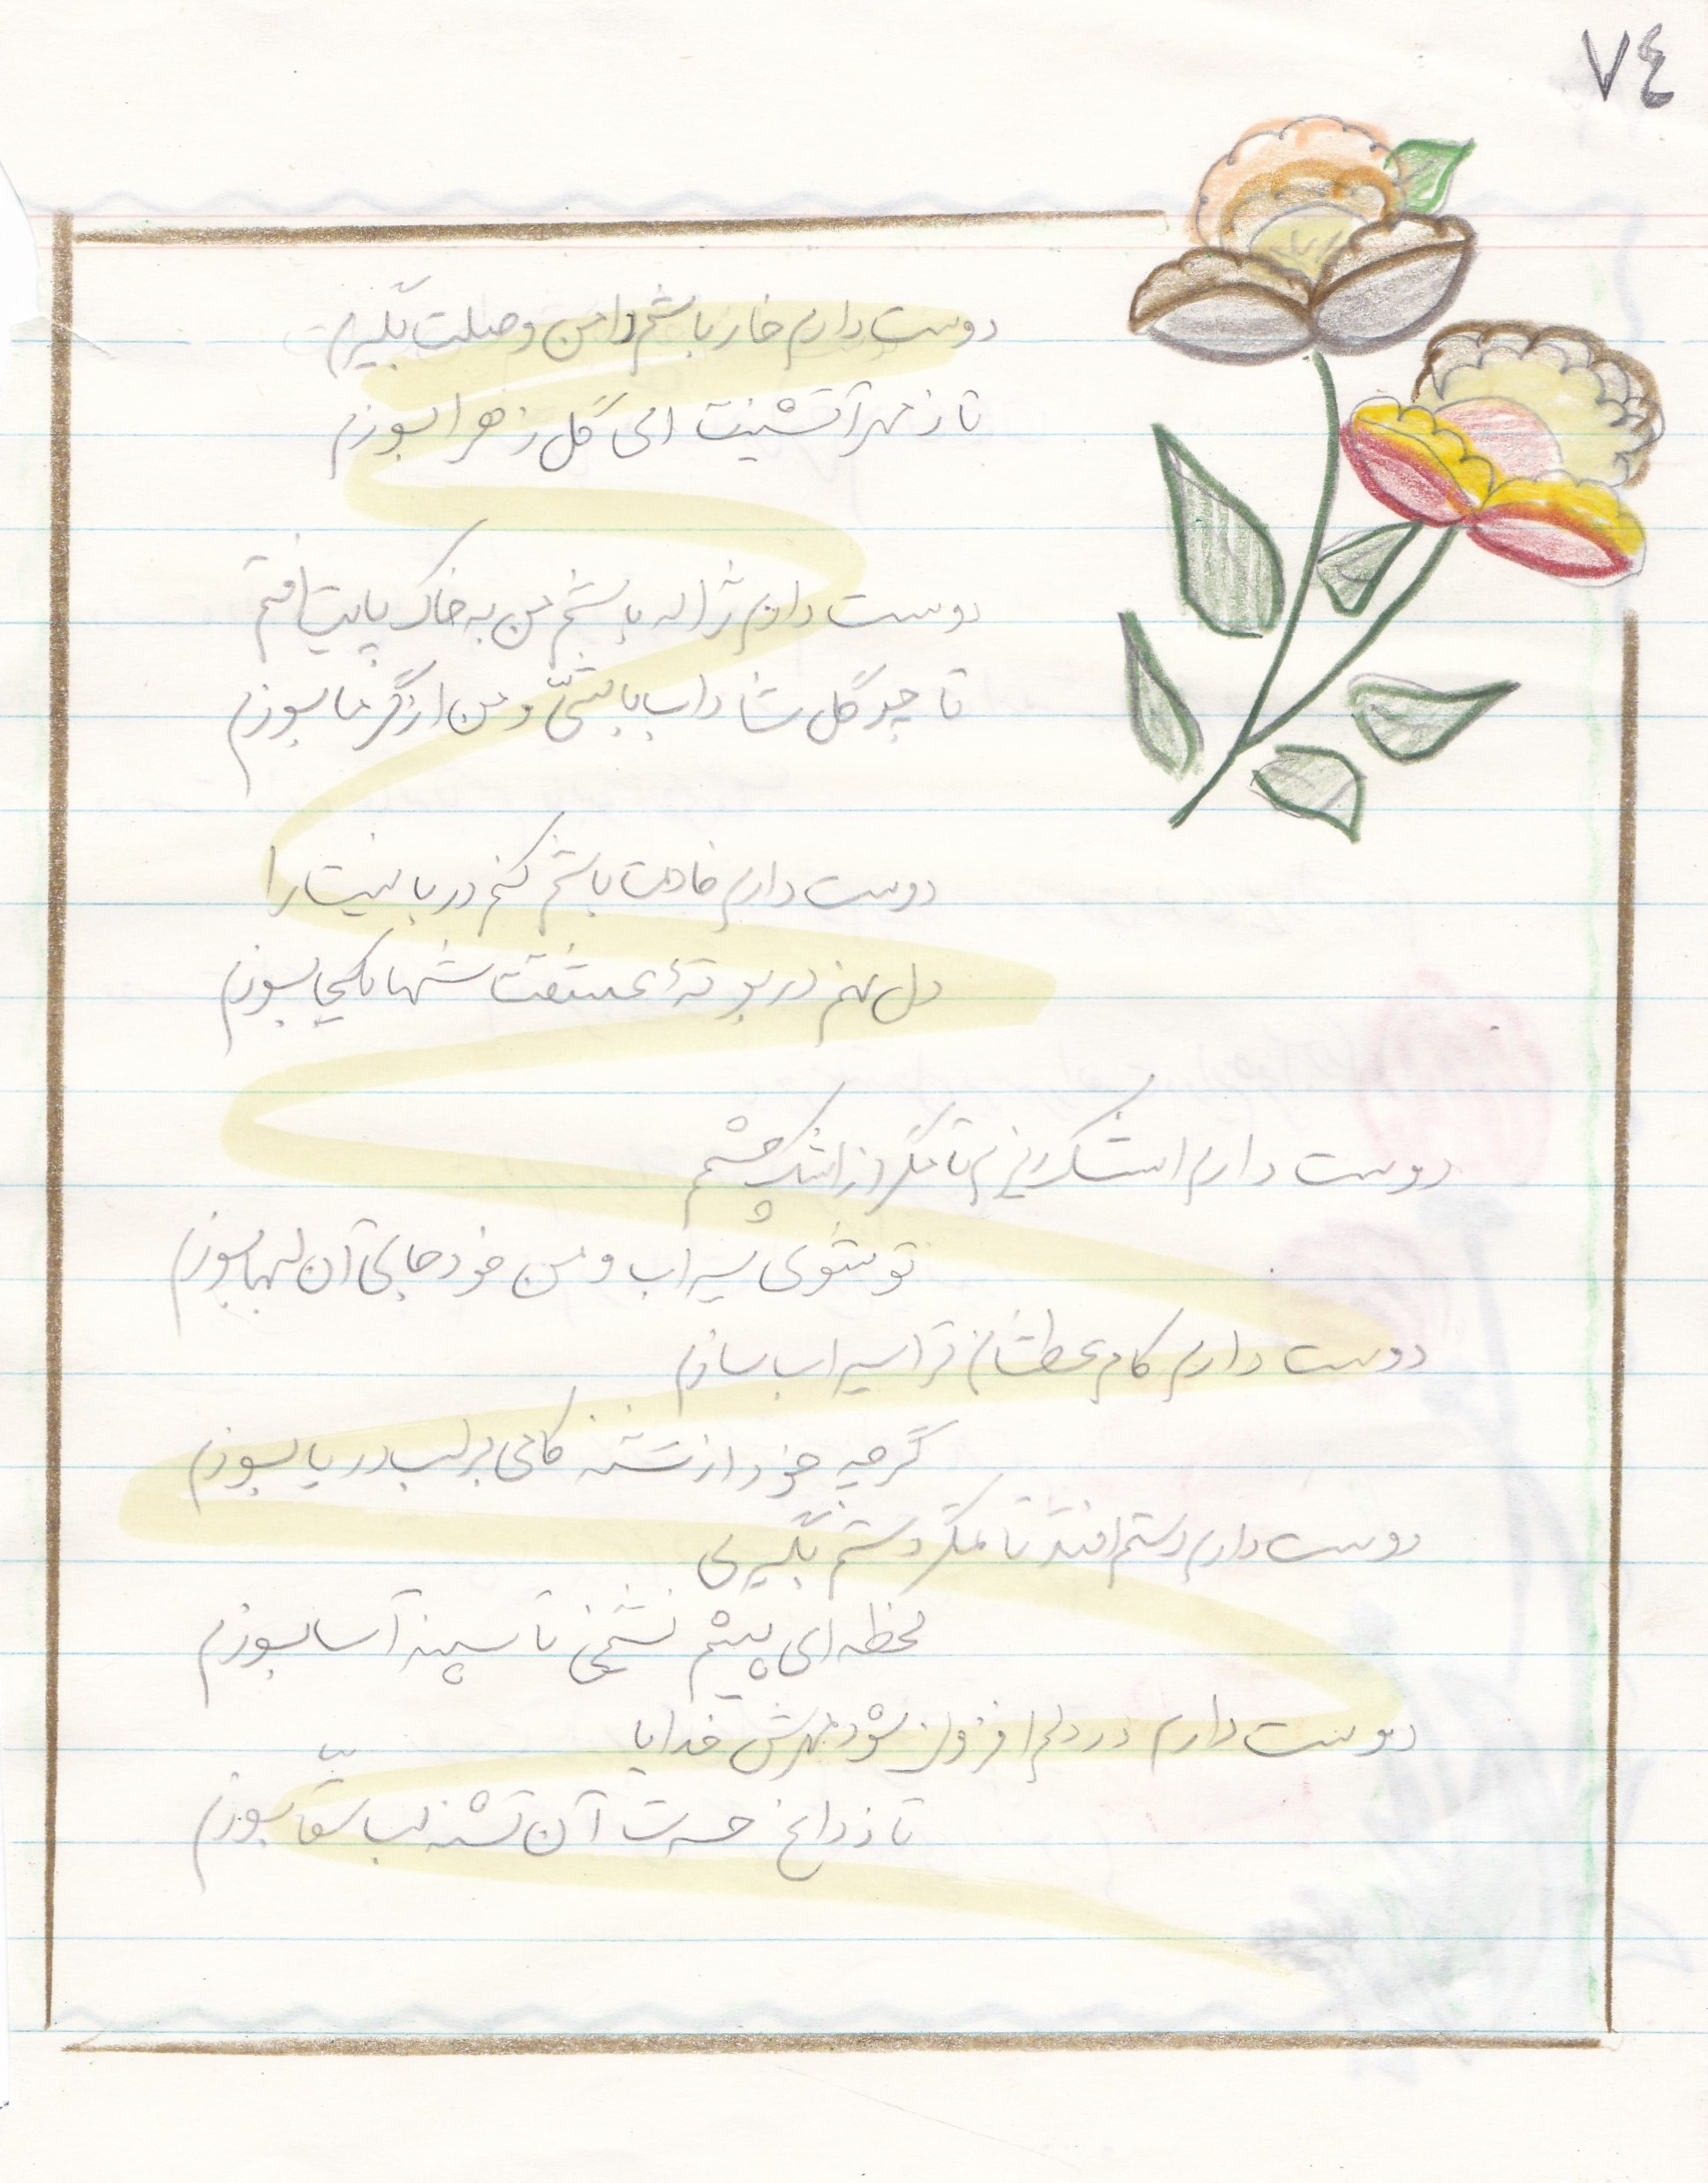 ٧٤
دوست دارم خار باشم دامن وصلت بگیرم
تا ز مهر آتشینت ای گل زهرا بسوزم
دوست دارم ژاله باشم من به خاک پایت افتم
تا چو گل شاداب باشی و من از گرما بسوزم
دوست دارم خادمت باشم کنم دربانیت را
دل نهم در بوته‌ی عشقت شها یکجا بسوزم
دوست دارم اشک ریزم تا مگر از اشک چشم
تو شوی سیراب و من خود جای آن لبها بسوزم
دوست دارم کام عطشان ترا سیراب سازم
گرچه خود از تشنه کامی بر لب دریا بسوزم
دوست دارم دستم افتد تا مگر دستم بگیری
لحظه‌ای پیشم نشینی تا سپند آسا بسوزم
دوست دارم در دلم افزون شود مهرش خدایا
تا ز داغ حسرت آن تشنه لب سقا بسوزم